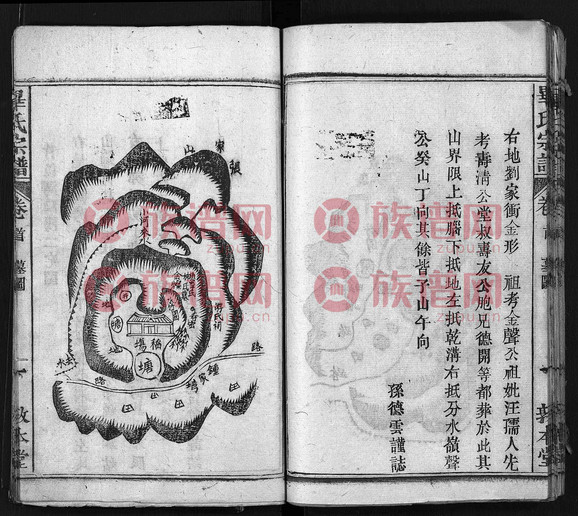 畢氏宗譜
卷首
墓圖
敦本堂
右地劉家衝金形 祖考金聲公祖妣汪孺人先
考靑淸公堂叔專友公胞兄德開等都葬於此其
山界限上抵腦下抵地左抵乾溝右抵分水嶺聲
公癸山丁向其餘皆子山午向
孫德雲謹誌
畢氏宗譜
卷首
墓圖
一
敦本堂
山
路
塘
族谱网
zupu.cn